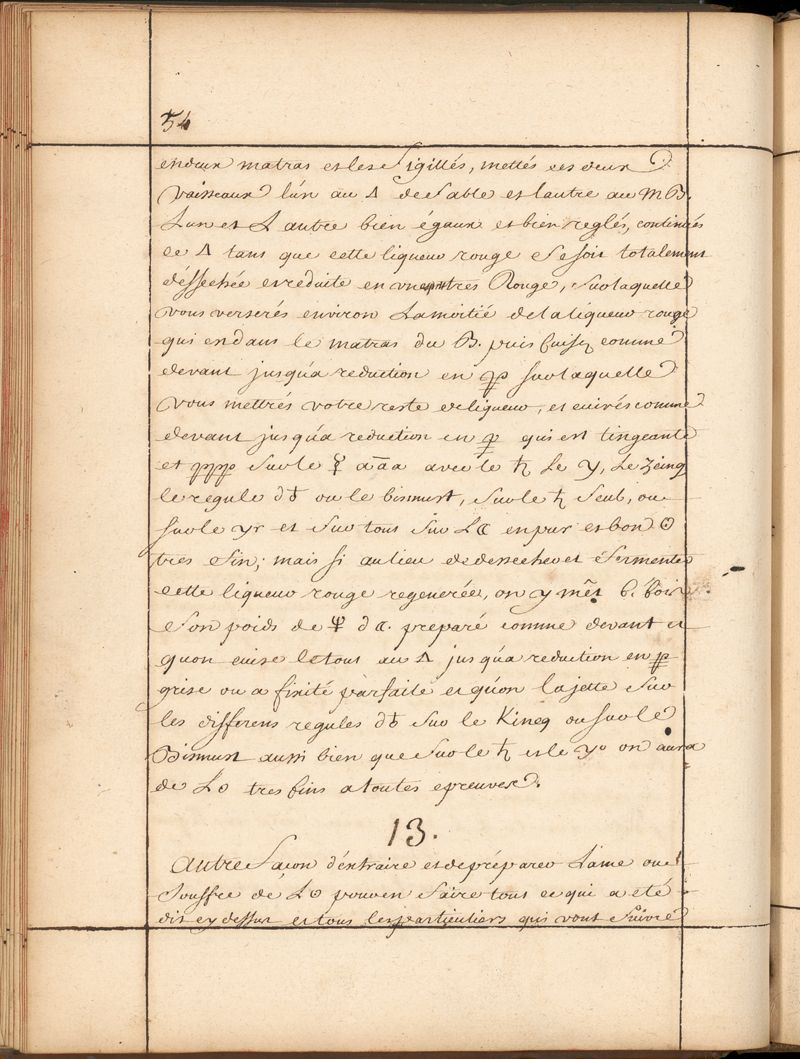 54
endeux matras et les Sigillés, mettés ces deux
Vaisseaux l'un au 🜂 de Sable et lautre au MB.
Lun et L autre bien égaux et bien reglés, continués
ce 🜂 tans que cette liqueur rouge Se soit totalement
déssechée et reduite en une tres Rouge, Sur laquelle
vous verserés environ Lamoitié de la liqueur rouge
qui en dans le matras du B. puis cuisez comme
devant jusqu'a reduction en sur laquelle
Vous mettrés votre reste de liqueur, et cuirés comme
devant jusqu'a reduction en qui est tingeante
et Sur le ☿ aãa avec le ♄ Le Le Zeing
le regule d♁ ou le bismust, Sur le ♄ Seul, ou
sur le et Sur tout Sur L☾ en pur et bon ☉
tres fin; mais si au lieu de dessecher et fermenter
cette liqueur rouge regenerée, on y mét
Son poids de d☾. preparé comme devant et
quon cuise le tout au 🜂 jusqu'a reduction en
grise ou a fixité parfaite et qu'on la jette Sur
les differens regules d♁ Sur le Kineq ou sur le
Bismust aussi bien que Sur le ♄ et le on aura
de L☉ tres fins a toutes epreuves.
13.
Autre façon d'extraire et de préparer Lame ou
Souffre de L☉ pour en faire tout ce qui a eté
dit cy dessus et tous les particuliers qui vont Suivre